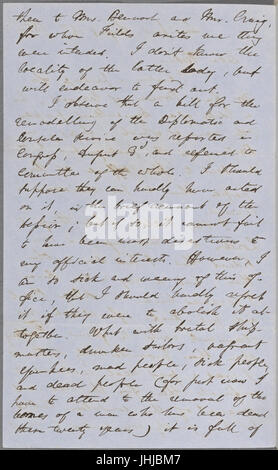 them to Mrs. Bennoch and Mrs. Craig,
for whom Fields writes me they
were intended. I don't know the
locality of the latter lady, but
will endeavor to find out.
I observe that a bill for the
remodelling of the Diplomatic and
Consular service was reported in
Congress, August 3d, and referred to
Committee of the whole. I should
suppose they can hardly have acted
on it, in the brief remnant of the
session; but if so, it cannot fail
to have been most disastrous to
my official interests. However, I
am so sick and weary of this of-
fice, that I should hardly regret
it if they were to abolish it al-
together. What with brutal ship-
masters, drunken sailors, vagrant
Yankees, mad people, sick people
and dead people (for just now I
have to attend to the removal of the
bones of a man who has been dead
these twenty years) it is full of
alamy
alamy stock photo
JHJBM7
www.alamy.com